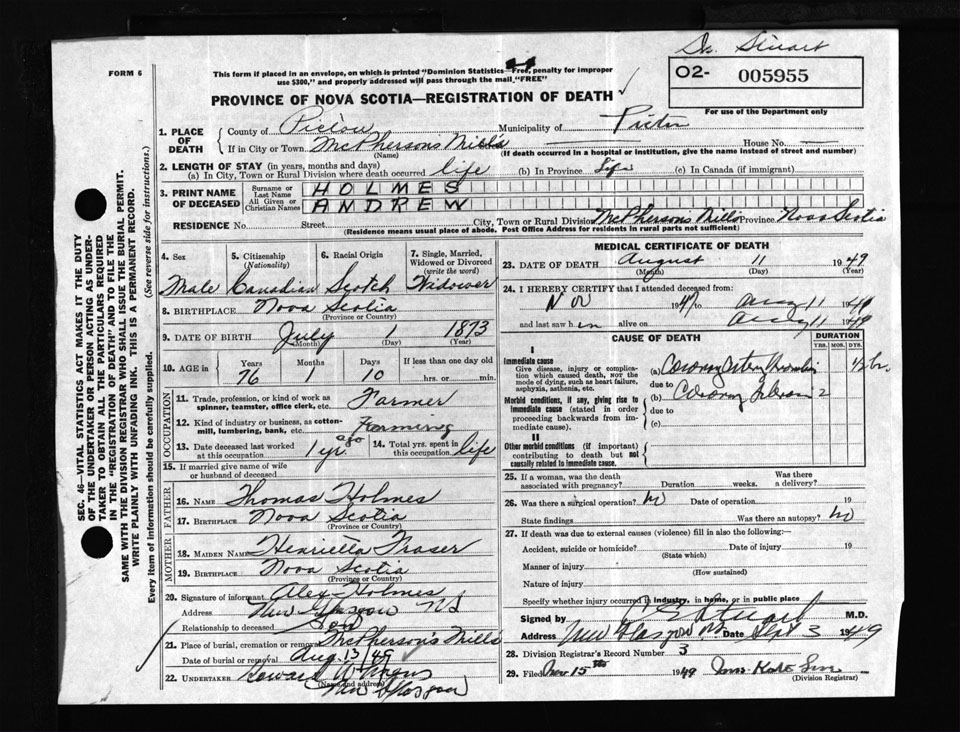 Dr. Stuart
FORM 6
This form if placed in an envelope, on which is printed "Dominion Statistics—Free, penalty for improper
use $300," and properly addressed will pass through the mail "FREE"
O2- 005955
For use of the Department only
PROVINCE OF NOVA SCOTIA—REGISTRATION OF DEATH
1. PLACE OF DEATH
County of Pictou Municipality of Pictou
If in City or Town McPhersons Mills House No.
(Name) (If death occurred in a hospital or institution, give the name instead of street and number)
2. LENGTH OF STAY (in years, months and days)
(a) In City, Town or Rural Division where death occurred life (b) In Province Life (c) In Canada (if immigrant)
3. PRINT NAME OF DECEASED
Surname or Last Name HOLMES
All Given or Christian Names ANDREW
RESIDENCE No. Street City, Town or Rural Division McPhersons Mills Province Nova Scotia
(Residence means usual place of abode. Post Office Address for residents in rural parts not sufficient)
4. Sex 5. Citizenship (Nationality) 6. Racial Origin 7. Single, Married, Widowed or Divorced (write the word)
Male Canadian Scotch Widower
8. BIRTHPLACE Nova Scotia
(Province or Country)
9. DATE OF BIRTH July 1 1873
(Month) (Day) (Year)
10. AGE IN Years Months Days If less than one day old
76 1 10 hrs. or min.
OCCUPATION
11. Trade, profession, or kind of work as
spinner, teamster, office clerk, etc. Farmer
12. Kind of industry or business, as cotton-
mill, lumbering, bank, etc. Farming
13. Date deceased last worked at this occupation 1 yr. ago
14. Total yrs. spent in this occupation life
15. If married give name of wife
or husband of deceased
FATHER
16. NAME Thomas Holmes
17. BIRTHPLACE Nova Scotia
(Province or Country)
MOTHER
18. MAIDEN NAME Henrietta Fraser
19. BIRTHPLACE Nova Scotia
(Province or Country)
20. Signature of informant Alex Holmes
Address New Glasgow NS
Relationship to deceased Son
21. Place of burial, cremation or removal McPhersons Mills
Date of burial or removal Aug. 13/49
22. UNDERTAKER Howard W
(Name and address) New Glasgow
MEDICAL CERTIFICATE OF DEATH
23. DATE OF DEATH August 11 1949
(Month) (Day) (Year)
24. I HEREBY CERTIFY that I attended deceased from:
Nov 1947 to Aug 11 1949
and last saw him alive on Aug 11 1949
CAUSE OF DEATH DURATION
YRS. MOS. DYS.
I
Immediate cause
Give disease, injury or compli-
cation which caused death, NOT the
mode of dying, such as heart failure,
asphyxia, asthenia, etc.
(a) Coronary Artery Thrombosis ½ hr.
due to
Morbid conditions, if any, giving rise to
immediate cause (stated in order
proceeding backwards from im-
mediate cause).
(b) Coronary Sclerosis 2
due to
(c)
II
Other morbid conditions (if important)
contributing to death but not
causally related to immediate cause.
25. If a woman, was the death
associated with pregnancy? Duration weeks. Was there a delivery?
26. Was there a surgical operation? No Date of operation 19
State findings Was there an autopsy? No
27. If death was due to external causes (violence) fill in also the following:—
Accident, suicide or homicide? Date of injury 19
(State which)
Manner of injury
(How sustained)
Nature of injury
Specify whether injury occurred in industry, in home, or in public place
Signed by Stuart M.D.
Address New Glasgow NS Date Sept 3 1949
28. Division Registrar's Record Number 3
29. Filed Nov 15th 1949
(Division Registrar)
SEC. 46—VITAL STATISTICS ACT MAKES IT THE DUTY
OF THE UNDERTAKER OR PERSON ACTING AS UNDER-
TAKER TO OBTAIN ALL THE PARTICULARS REQUIRED
IN THE "REGISTRATION OF DEATH" AND TO FILE THE
SAME WITH THE DIVISION REGISTRAR WHO SHALL ISSUE THE BURIAL PERMIT.
WRITE PLAINLY WITH UNFADING INK. THIS IS A PERMANENT RECORD.
Every item of information should be carefully supplied. (See reverse side for instructions.)